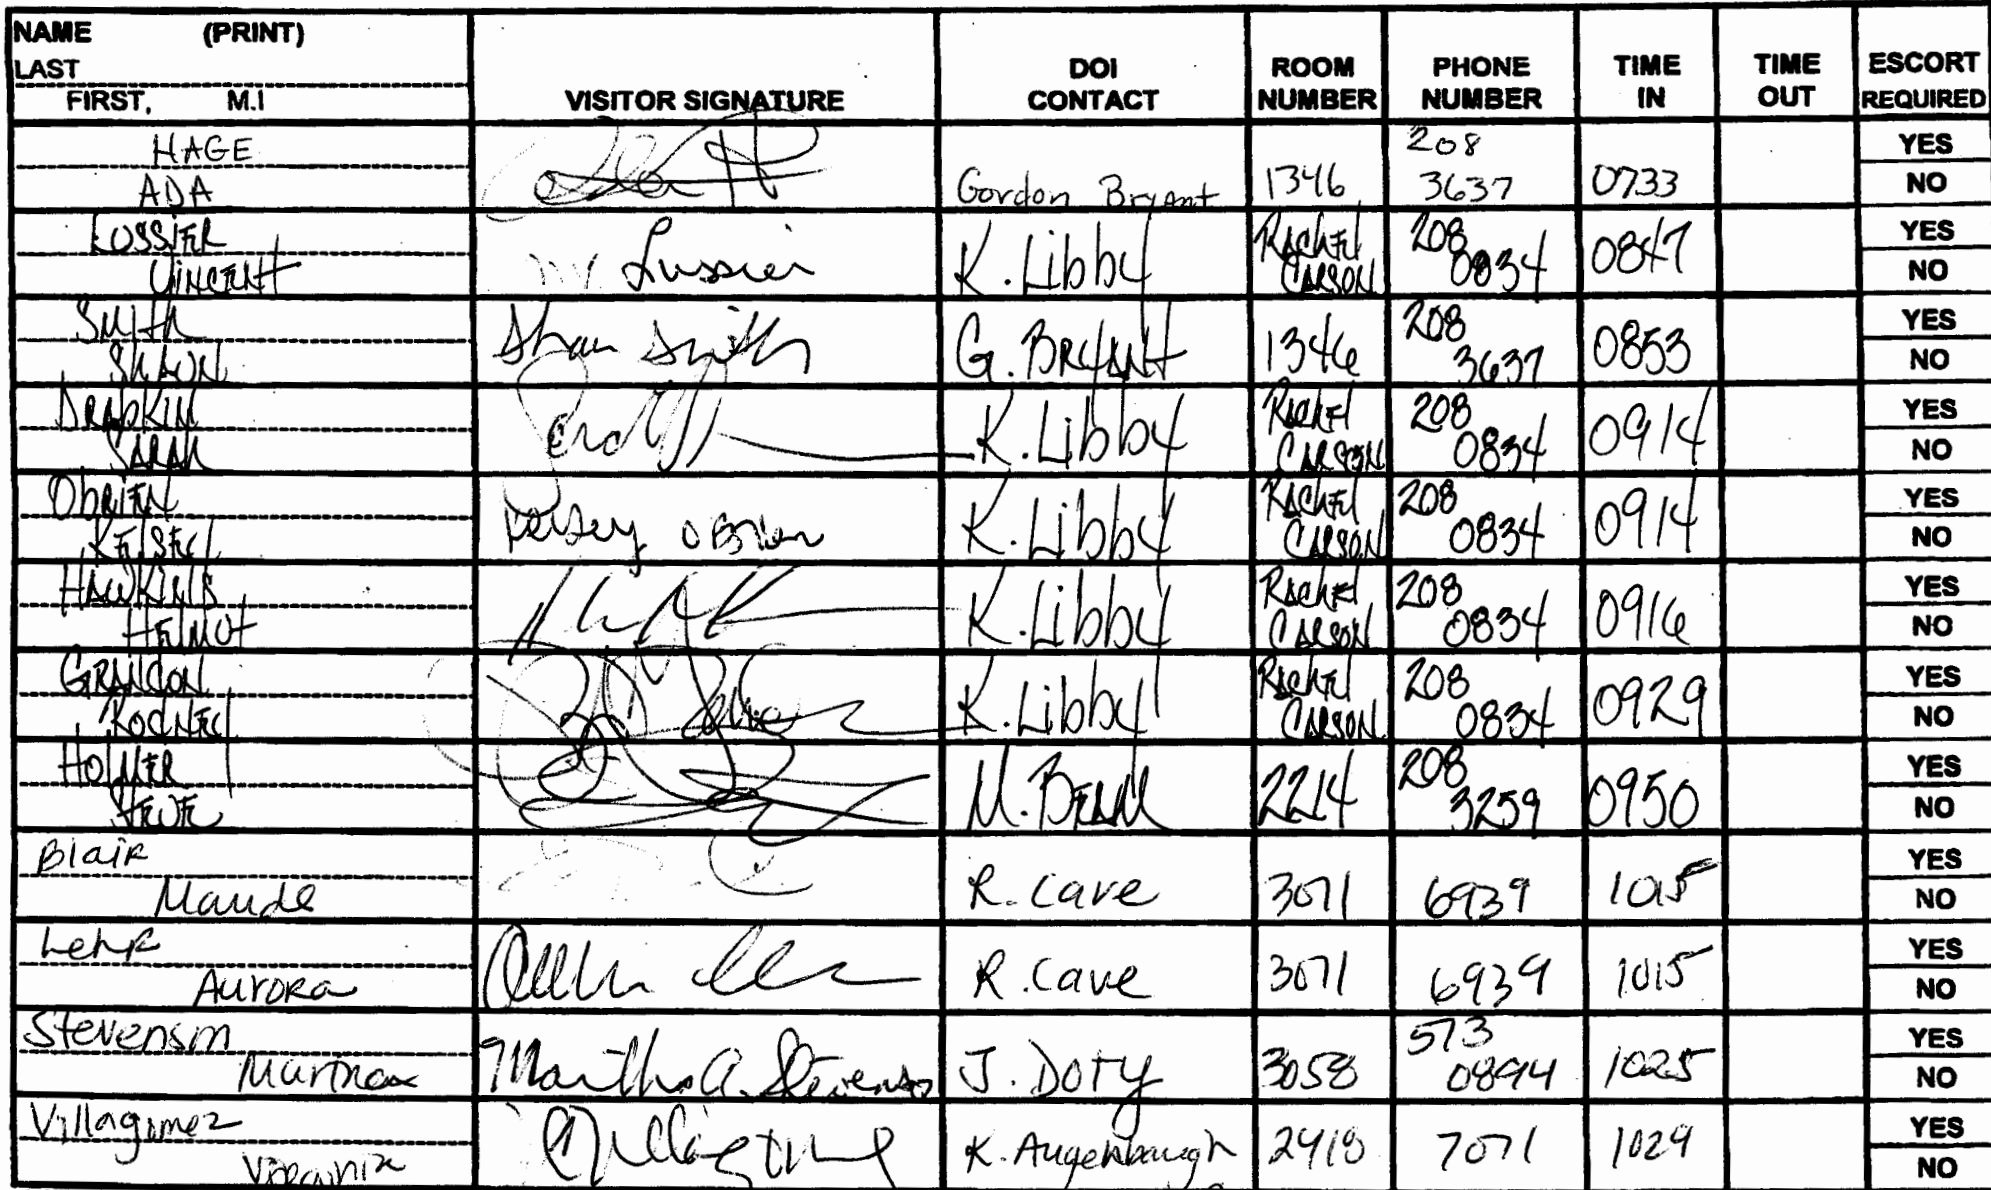 NAME (PRINT)
LAST
FIRST, M.I
VISITOR SIGNATURE
DOI CONTACT
ROOM NUMBER
PHONE NUMBER
TIME IN
TIME OUT
ESCORT REQUIRED
HAGE
ADA
Gordon Bryant 1346 208 3637 0733 YES NO
LUSSIER
VINCENT
Lussier K. Libby RACHEL CARSON 208 0834 0847 YES NO
SMITH
SHAWN
Shawn Smith G. BRYANT 1346 208 3637 0853 YES NO
DRAPKIN
SARAH
K. Libby RACHEL CARSON 208 0834 0914 YES NO
OBRIEN
KELSEY
Kelsey OBrien K. Libby RACHEL CARSON 208 0834 0914 YES NO
HAWKINS
HELMUT
K. Libby RACHEL CARSON 208 0834 0916 YES NO
RODNEY
K. Libby RACHEL CARSON 208 0834 0929 YES NO
HOLMER
STEVE
M. BEAM 2214 208 3259 0950 YES NO
Blair
Maude
R. Cave 3071 6939 1015 YES NO
Lehr
Aurora
R. Cave 3071 6939 1015 YES NO
Stevenson
Martha
Martha A. Stevenson J. Doty 3058 573 0894 1025 YES NO
Villagomez
Virginia
K. Augenbaugh 2418 7071 1029 YES NO